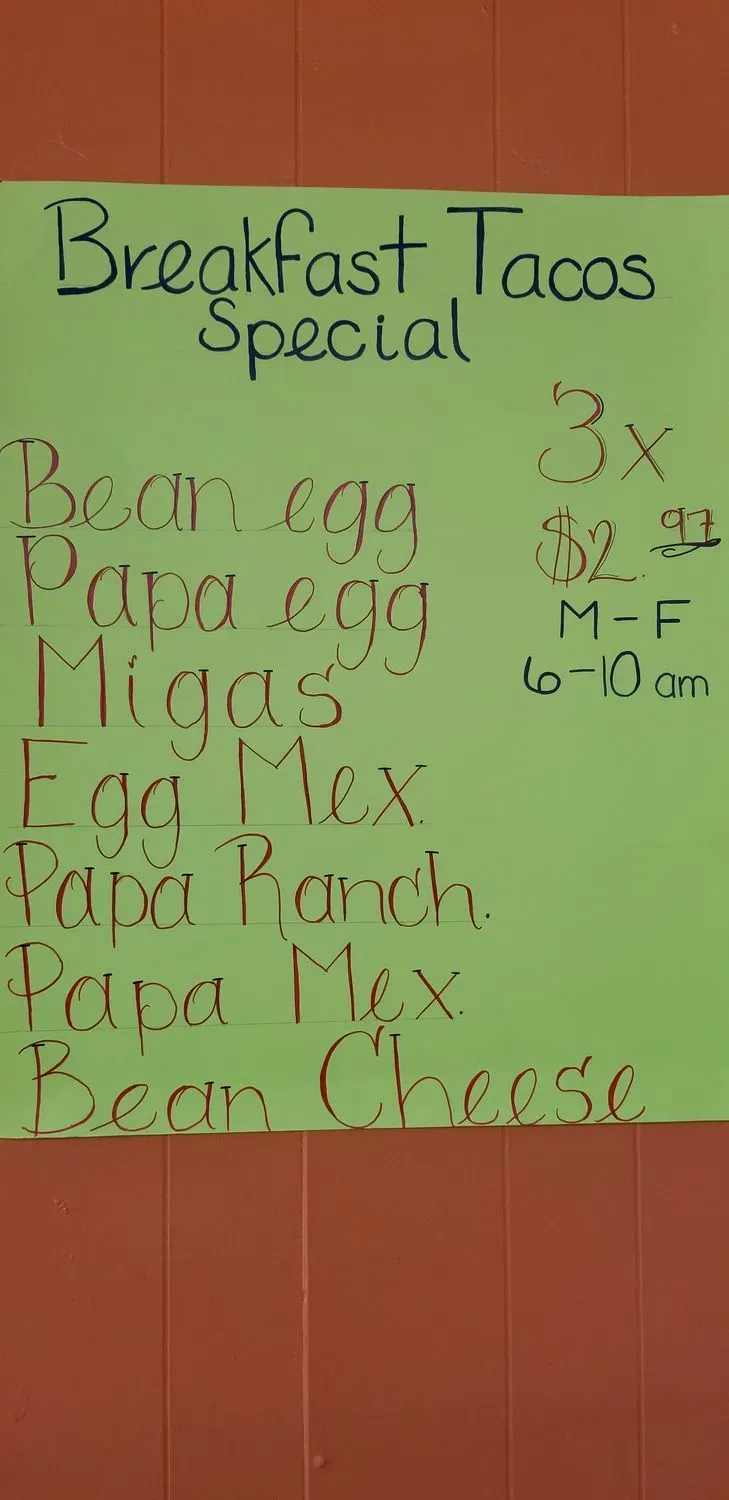 Breakfast Tacos
Special
3x
$2.97
M-F
6-10 am
Bean egg
Papa egg
Migas
Egg Mex.
Papa Ranch.
Papa Mex.
Bean Cheese